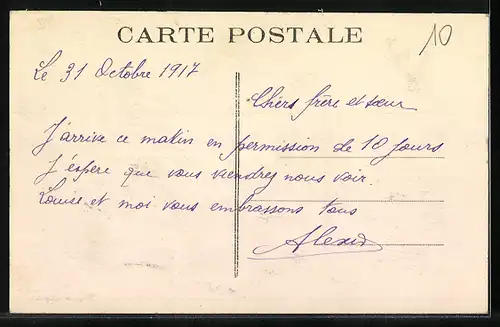 CARTE POSTALE
10
Le 31 Octobre 1917
Chers frère et sœur
J'arrive ce matin en permission de 10 Jours
J'éspère que vous viendrez nous voir.
Louise et moi vous embrassons tous
Alexis